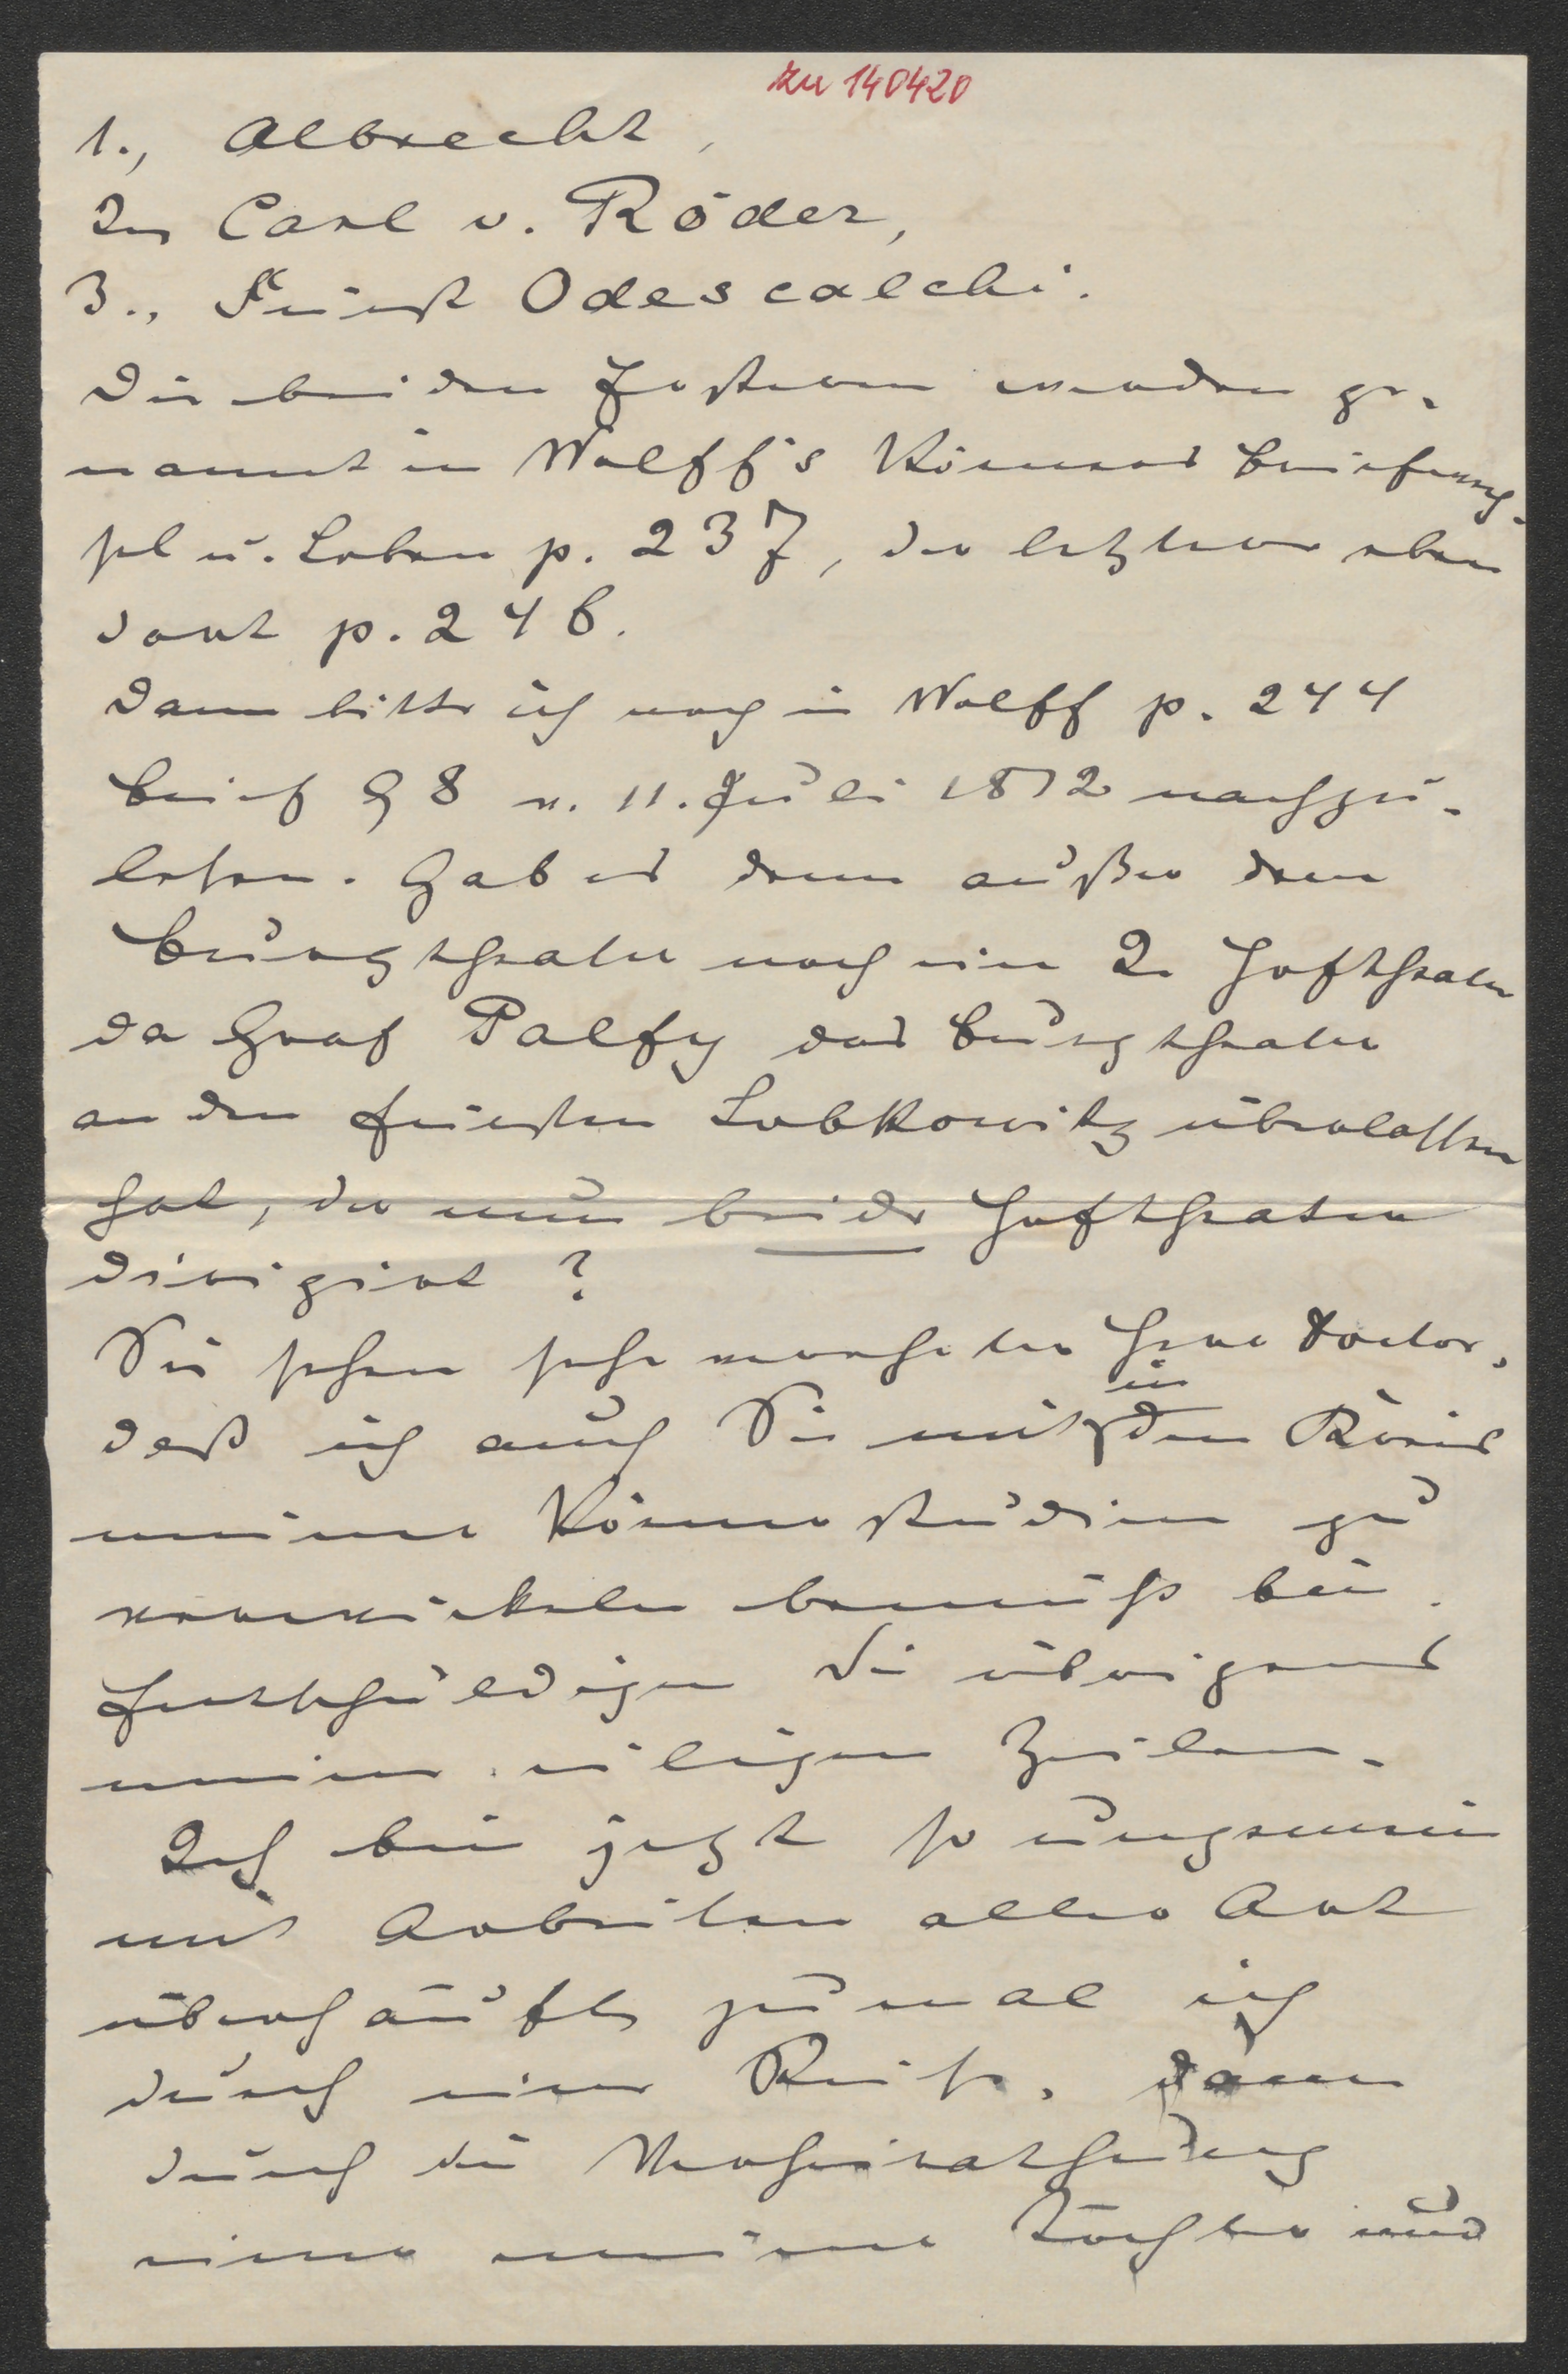 zu 140420
1., Albrecht,
2., Carl v. Röder,
3., Fürst Odescalchi.
Die beiden Ersteren werden ge-
nannt in Wolff's Körners Briefwech-
sel u. Leben p. 237, der letztere eben
dort p. 246.
Dann bitte ich noch in Wolff p. 244
Brief 98 v. 11. Juli 1812 nachzu-
lesen. Gab es denn außer dem
Burgtheater noch ein 2. Hoftheater
da Graf Palfy das Burgtheater
an den Fürsten Lobkowitz überlassen
hat, der nun beide Hoftheater
dirigirt?
Sie sehen sehr verehrter Herr Doctor,
daß ich auch Sie mit in den Kreis
meiner Körnerstudien zu
verwickeln bemüht bin.
Entschuldigen Sie übrigens
meine eiligen Zeilen.
Ich bin jetzt so ungemein
mit Arbeiten aller Art
überhäuft, zumal ich
durch eine Reise, dann
durch die Verheirathung
einer meiner Töchter und